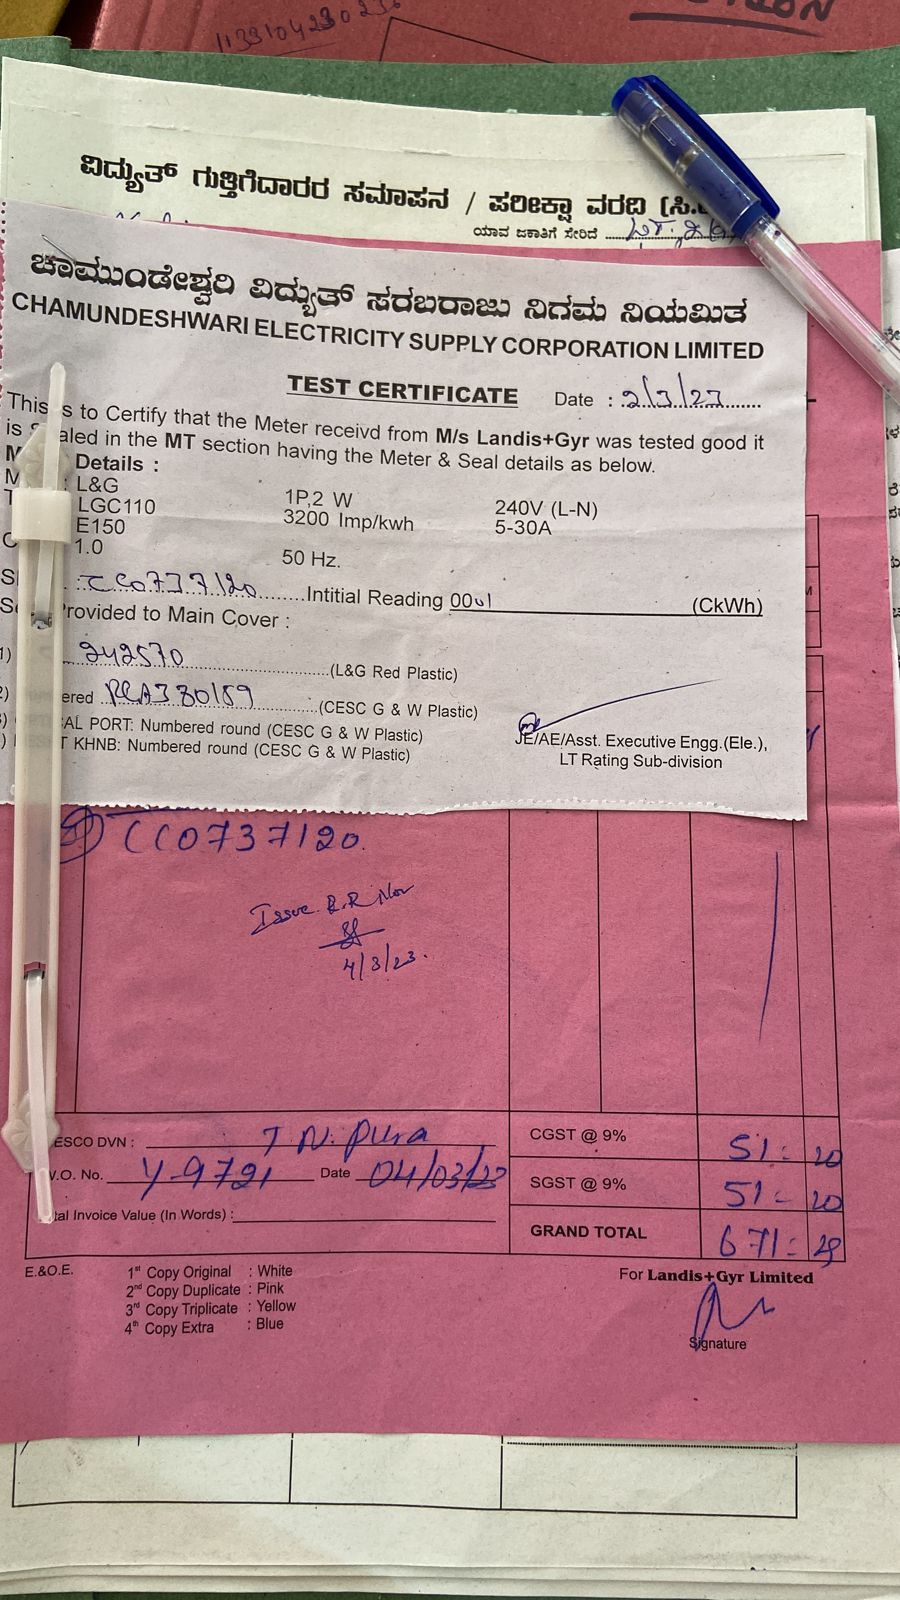 1139104230236
ವಿದ್ಯುತ್ ಗುತ್ತಿಗೆದಾರರ ಸಮಾಪನ / ಪರೀಕ್ಷಾ ವರದಿ (ಸಿ.
ಯಾವ ಜಕಾತಿಗೆ ಸೇರಿದೆ LT-2
ಚಾಮುಂಡೇಶ್ವರಿ ವಿದ್ಯುತ್ ಸರಬರಾಜು ನಿಗಮ ನಿಯಮಿತ
CHAMUNDESHWARI ELECTRICITY SUPPLY CORPORATION LIMITED
TEST CERTIFICATE Date : 2/3/23
This is to Certify that the Meter receivd from M/s Landis+Gyr was tested good it
is aled in the MT section having the Meter & Seal details as below.
Details :
: L&G 1P,2 W 240V (L-N)
LGC110 3200 Imp/kwh 5-30A
E150
1.0 50 Hz.
CC0737120 Intitial Reading 0001 (CkWh)
rovided to Main Cover :
1) 242570 (L&G Red Plastic)
2) ered 380159 (CESC G & W Plastic)
AL PORT: Numbered round (CESC G & W Plastic)
T KHNB: Numbered round (CESC G & W Plastic)
JE/AE/Asst. Executive Engg.(Ele.),
LT Rating Sub-division
CC0737120
Issue R.R Nor
4/3/23.
ESCO DVN : T N. Pura CGST @ 9% 51 = 20
V.O. No. Y-9721 Date 04/03/23 SGST @ 9% 51 = 20
tal Invoice Value (In Words) : GRAND TOTAL 671 = 29
E.&O.E. 1st Copy Original : White For Landis+Gyr Limited
2nd Copy Duplicate : Pink
3rd Copy Triplicate : Yellow
4th Copy Extra : Blue
Signature